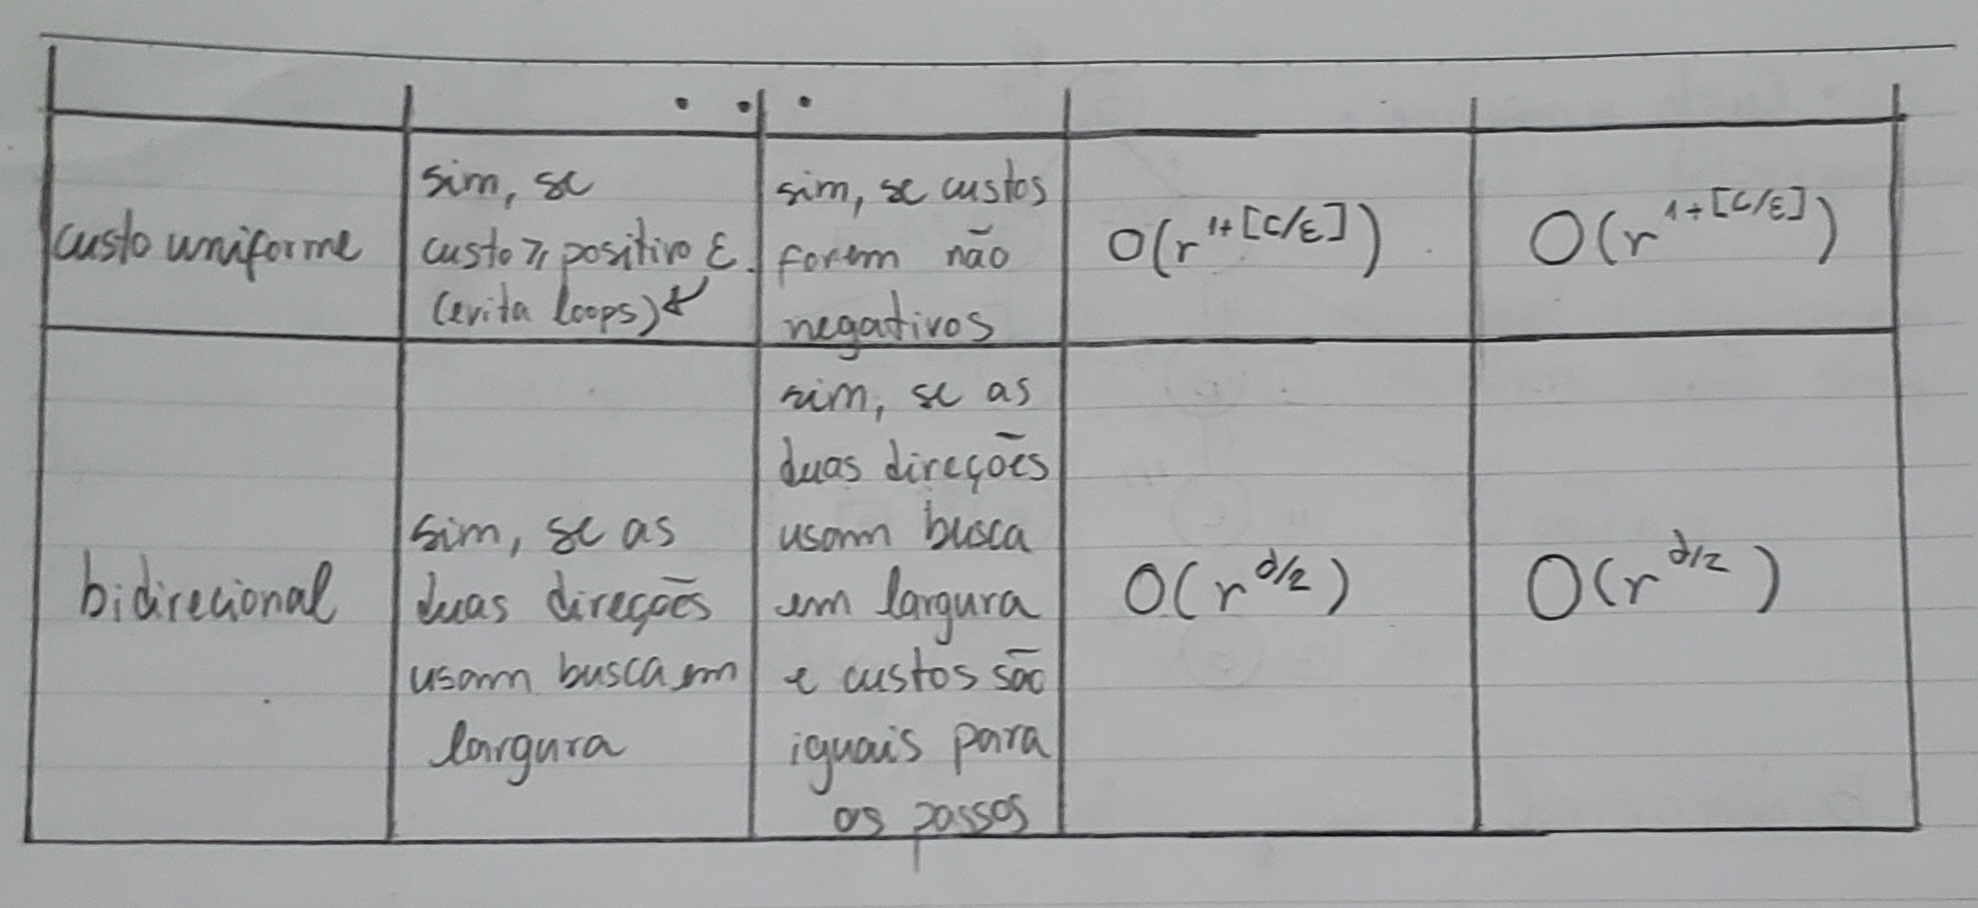 • • •
custo uniforme
sim, se
custo ⩾ positivo ε.
(evita loops) ↲
sim, se custos
forem não
negativos
O(r^1+[C/ε])
O(r^1+[C/ε])
bidirecional
sim, se as
duas direções
usam busca em
largura
sim, se as
duas direções
usam busca
em largura
e custos são
iguais para
os passos
O(r^d/2)
O(r^d/2)